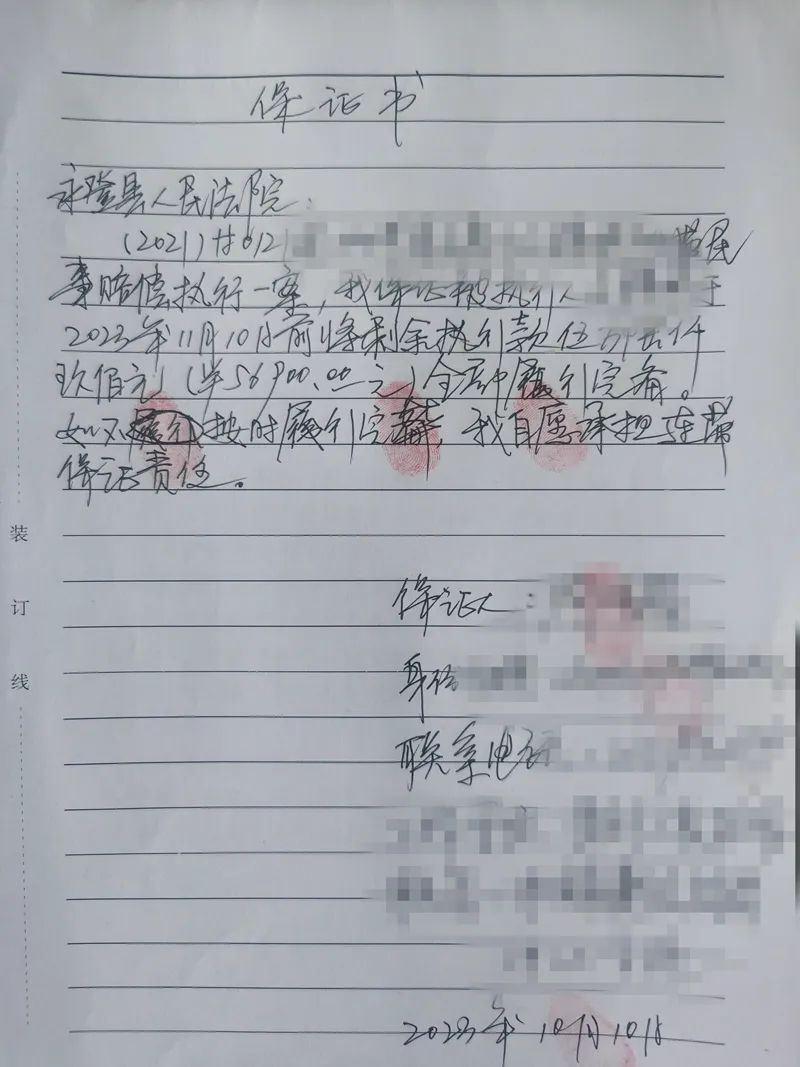 保证书
永登县人民法院：
(2021)甘0121
民
事赔偿执行一案，我保证被执行人 于
2023年11月10日前将剩余执行款伍万陆仟
玖佰元（￥56900.00元）全部履行完毕。
如不履行按时履行完毕，我自愿承担连带
保证责任。
保证人：
身份
联系电话
2023年10月10日
装
订
线